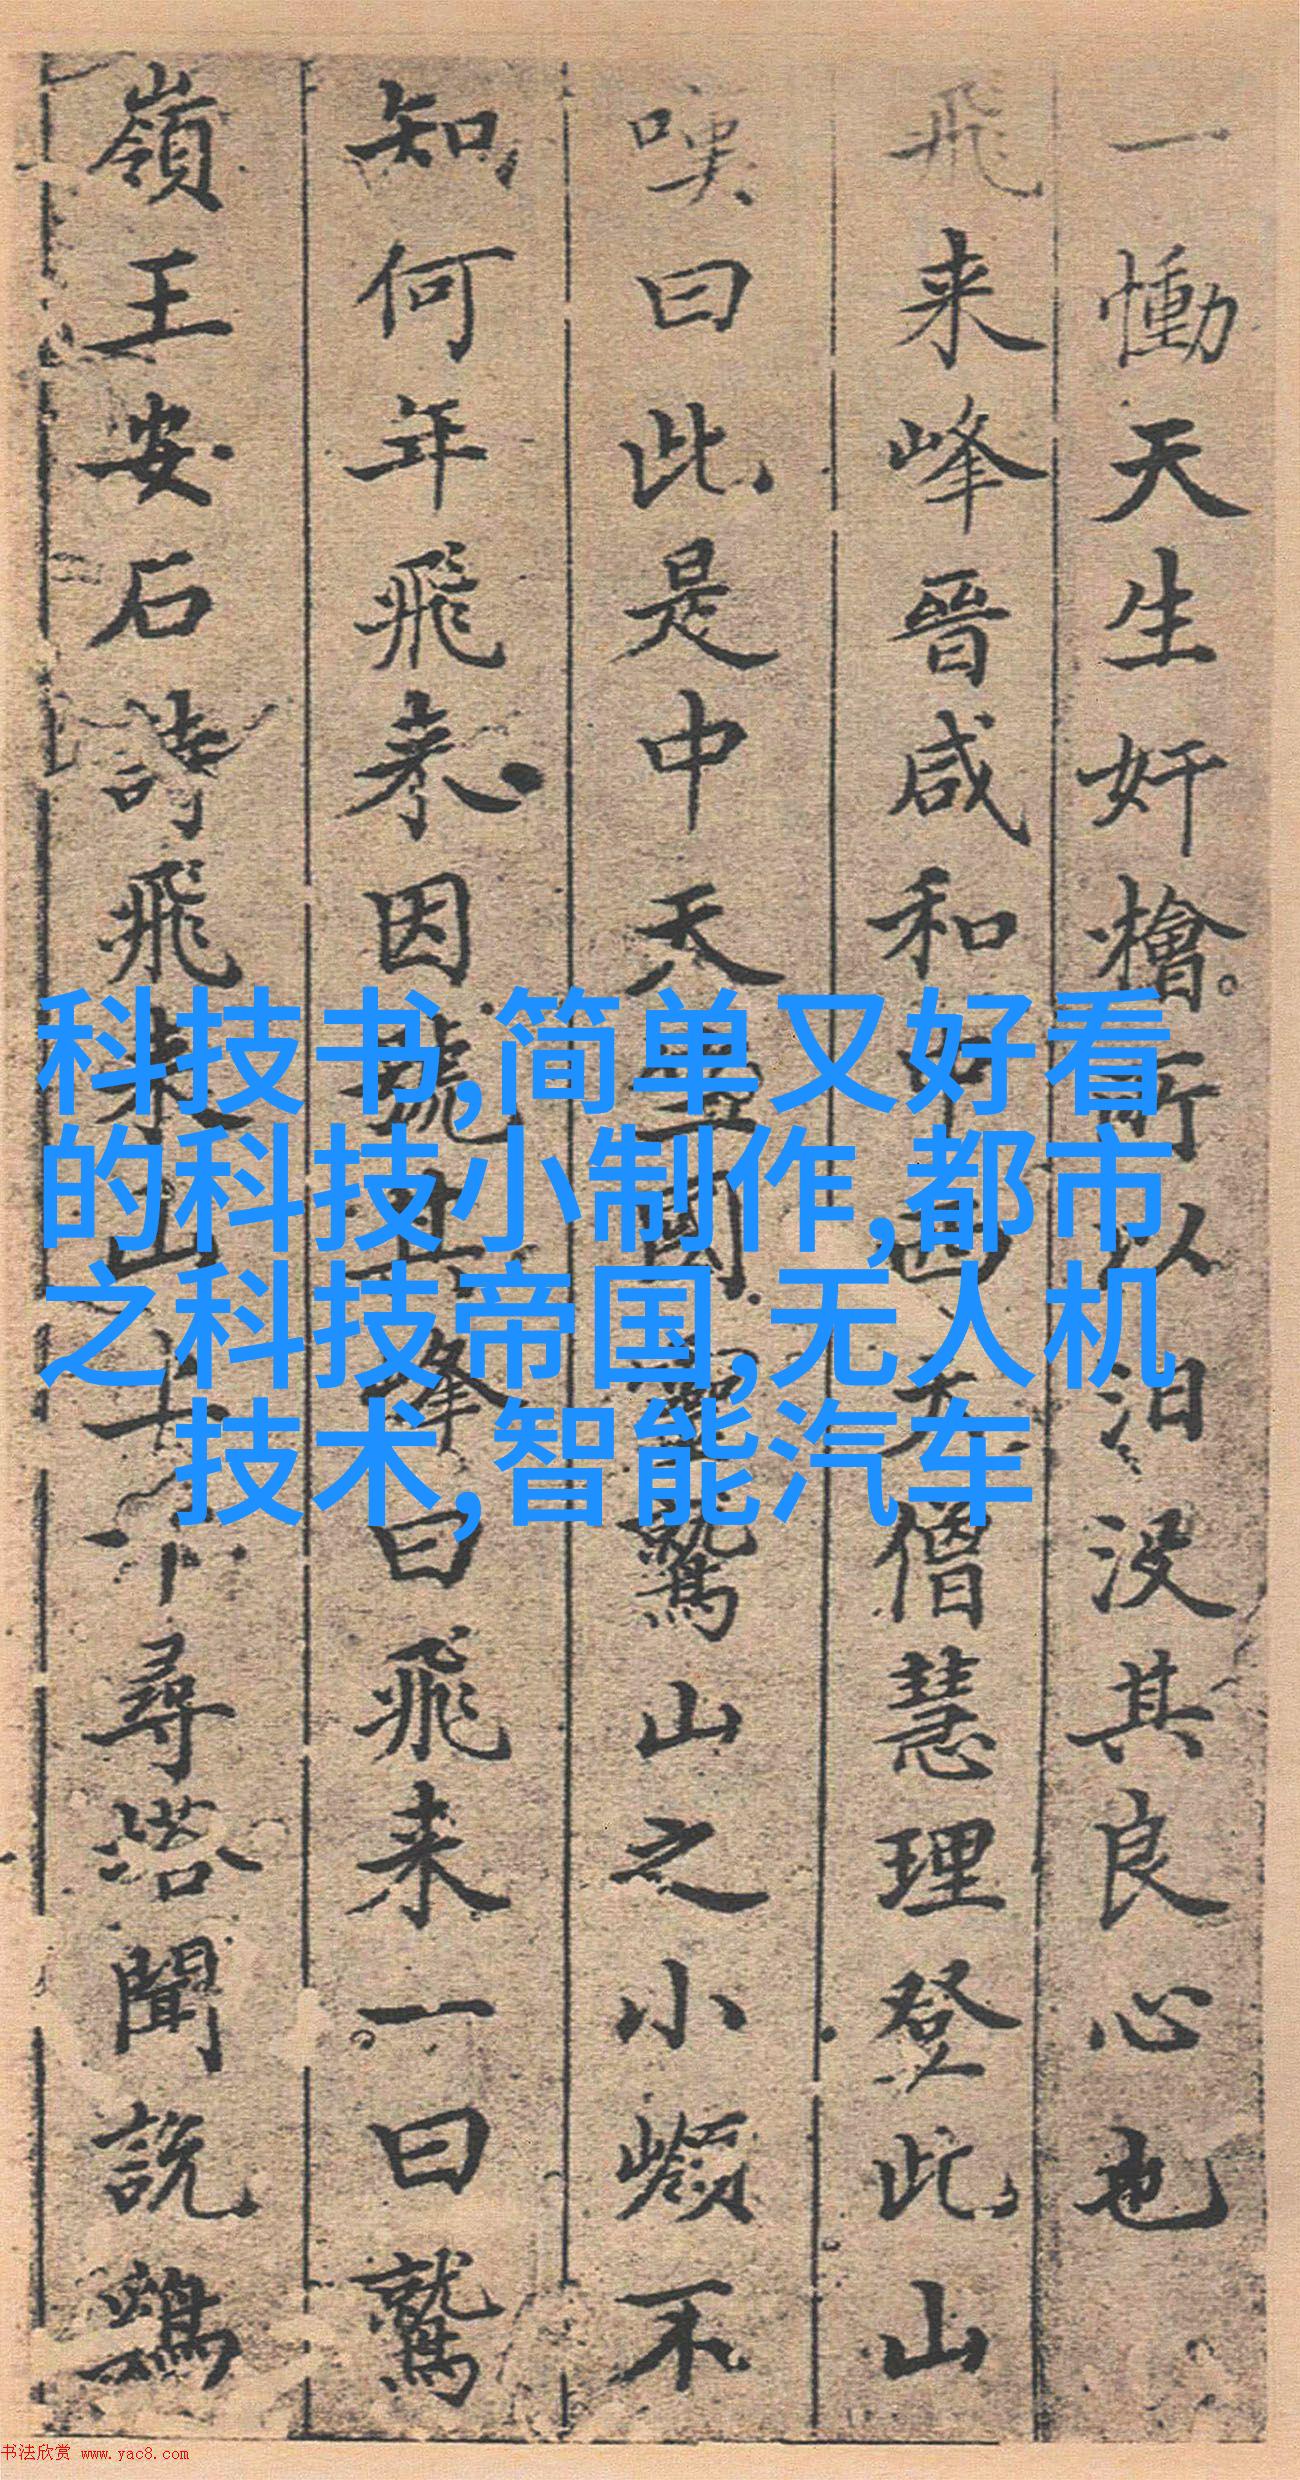 一慟天生奸檜所以汩没其良心也
飛来峰晉咸和中西天僧慧理登此山
嘆曰此是中天竺國靈鷲山之小嶺不
知何年飛来因號其峰曰飛来一曰鷲
嶺王安石詩飛来山上千尋塔聞説鷄
科技书,简单又好看
的科技小制作,都市
之科技帝国,无人机
技术,智能汽车
书法欣赏 www.yac8.com